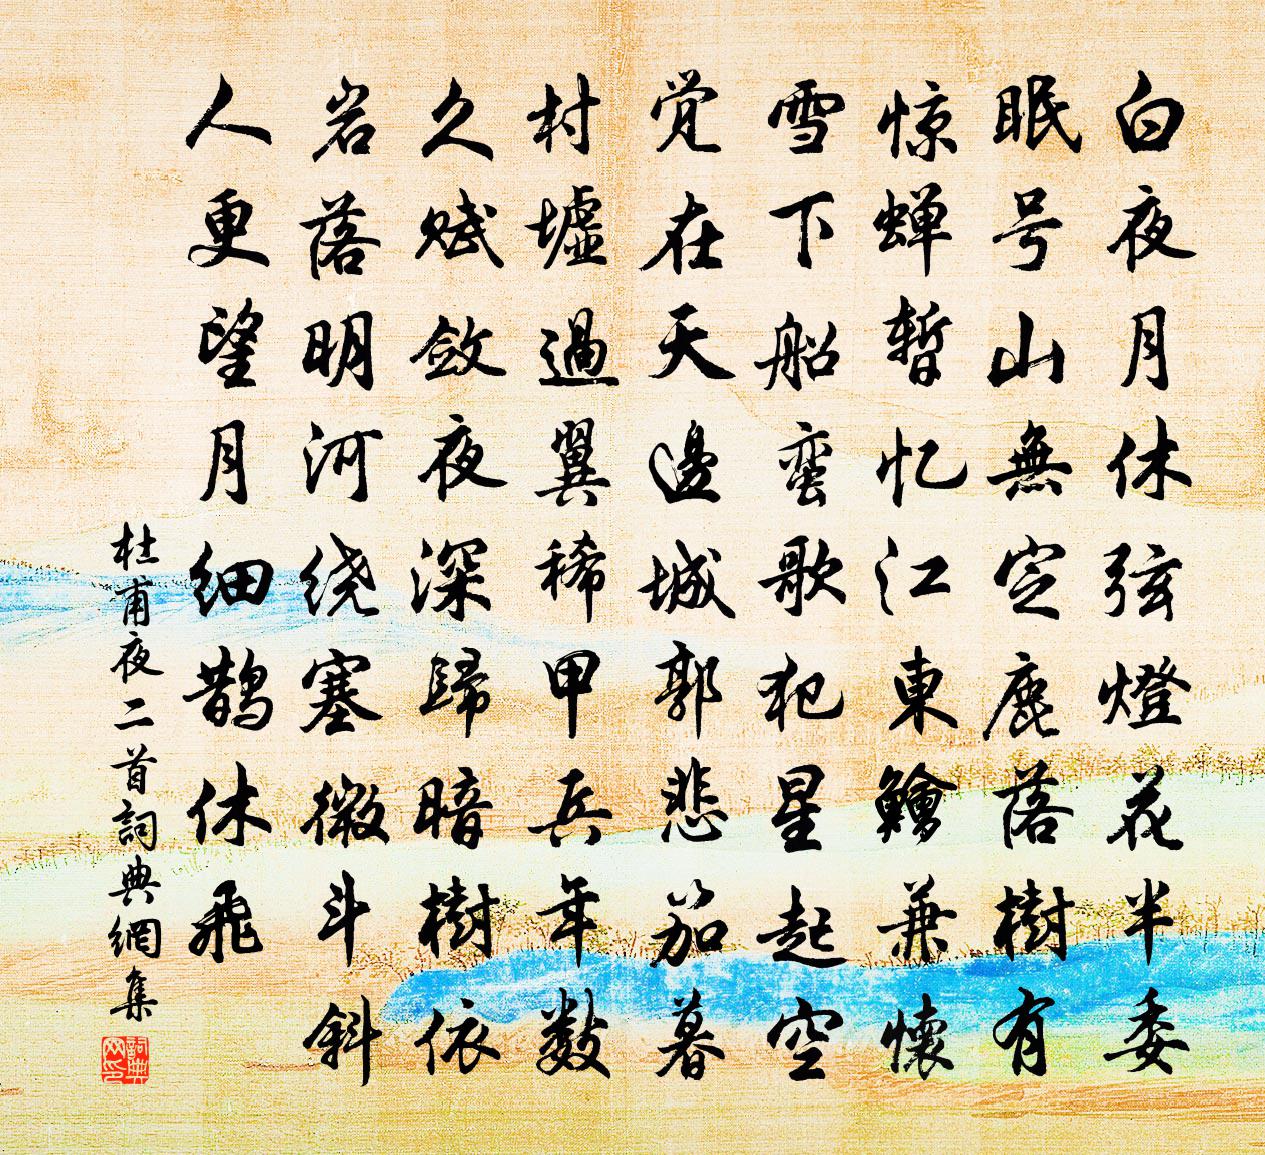 白夜月休弦燈花半委
眠号山無定鹿落樹有
惊蝉暫忆江東鱠兼懷
雪下船蛮歌犯星起空
觉在天邊城郭悲笳暮
村墟過翼稀甲兵年数
久赋敛夜深歸暗樹依
岩落明河绕塞微斗斜
人更望月细鹊休飛
杜甫夜二首詞典網集
詞典
网印